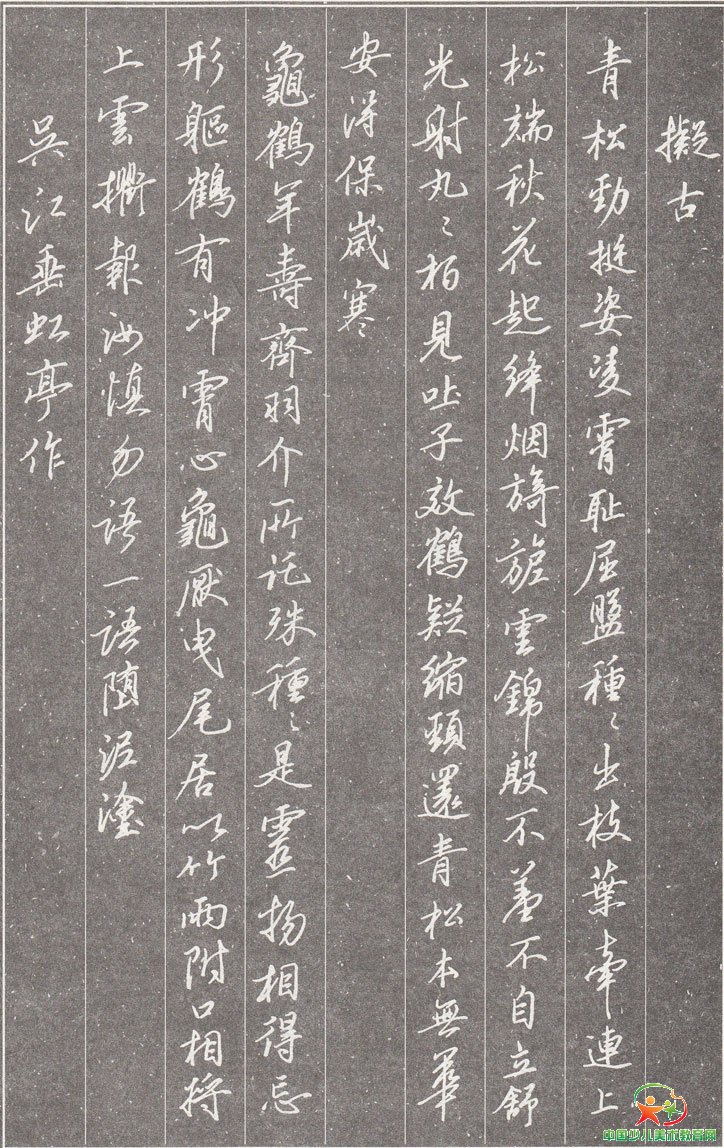 擬古
青松勁挺姿凌霄恥屈盤種〻出枝葉牽連上
松端秋花起絳烟旖旎雲錦殷不羞不自立舒
光射丸〻柏見吐子效鶴疑縮頸還青松本無華
安得保歲寒
龜鶴年壽齊羽介所託殊種〻是靈物相得忘
形軀鶴有冲霄心龜厭曳尾居以竹兩附口相將
上雲衢報汝慎勿語一語墮泥塗
吳江垂虹亭作
中国少儿美术教育网